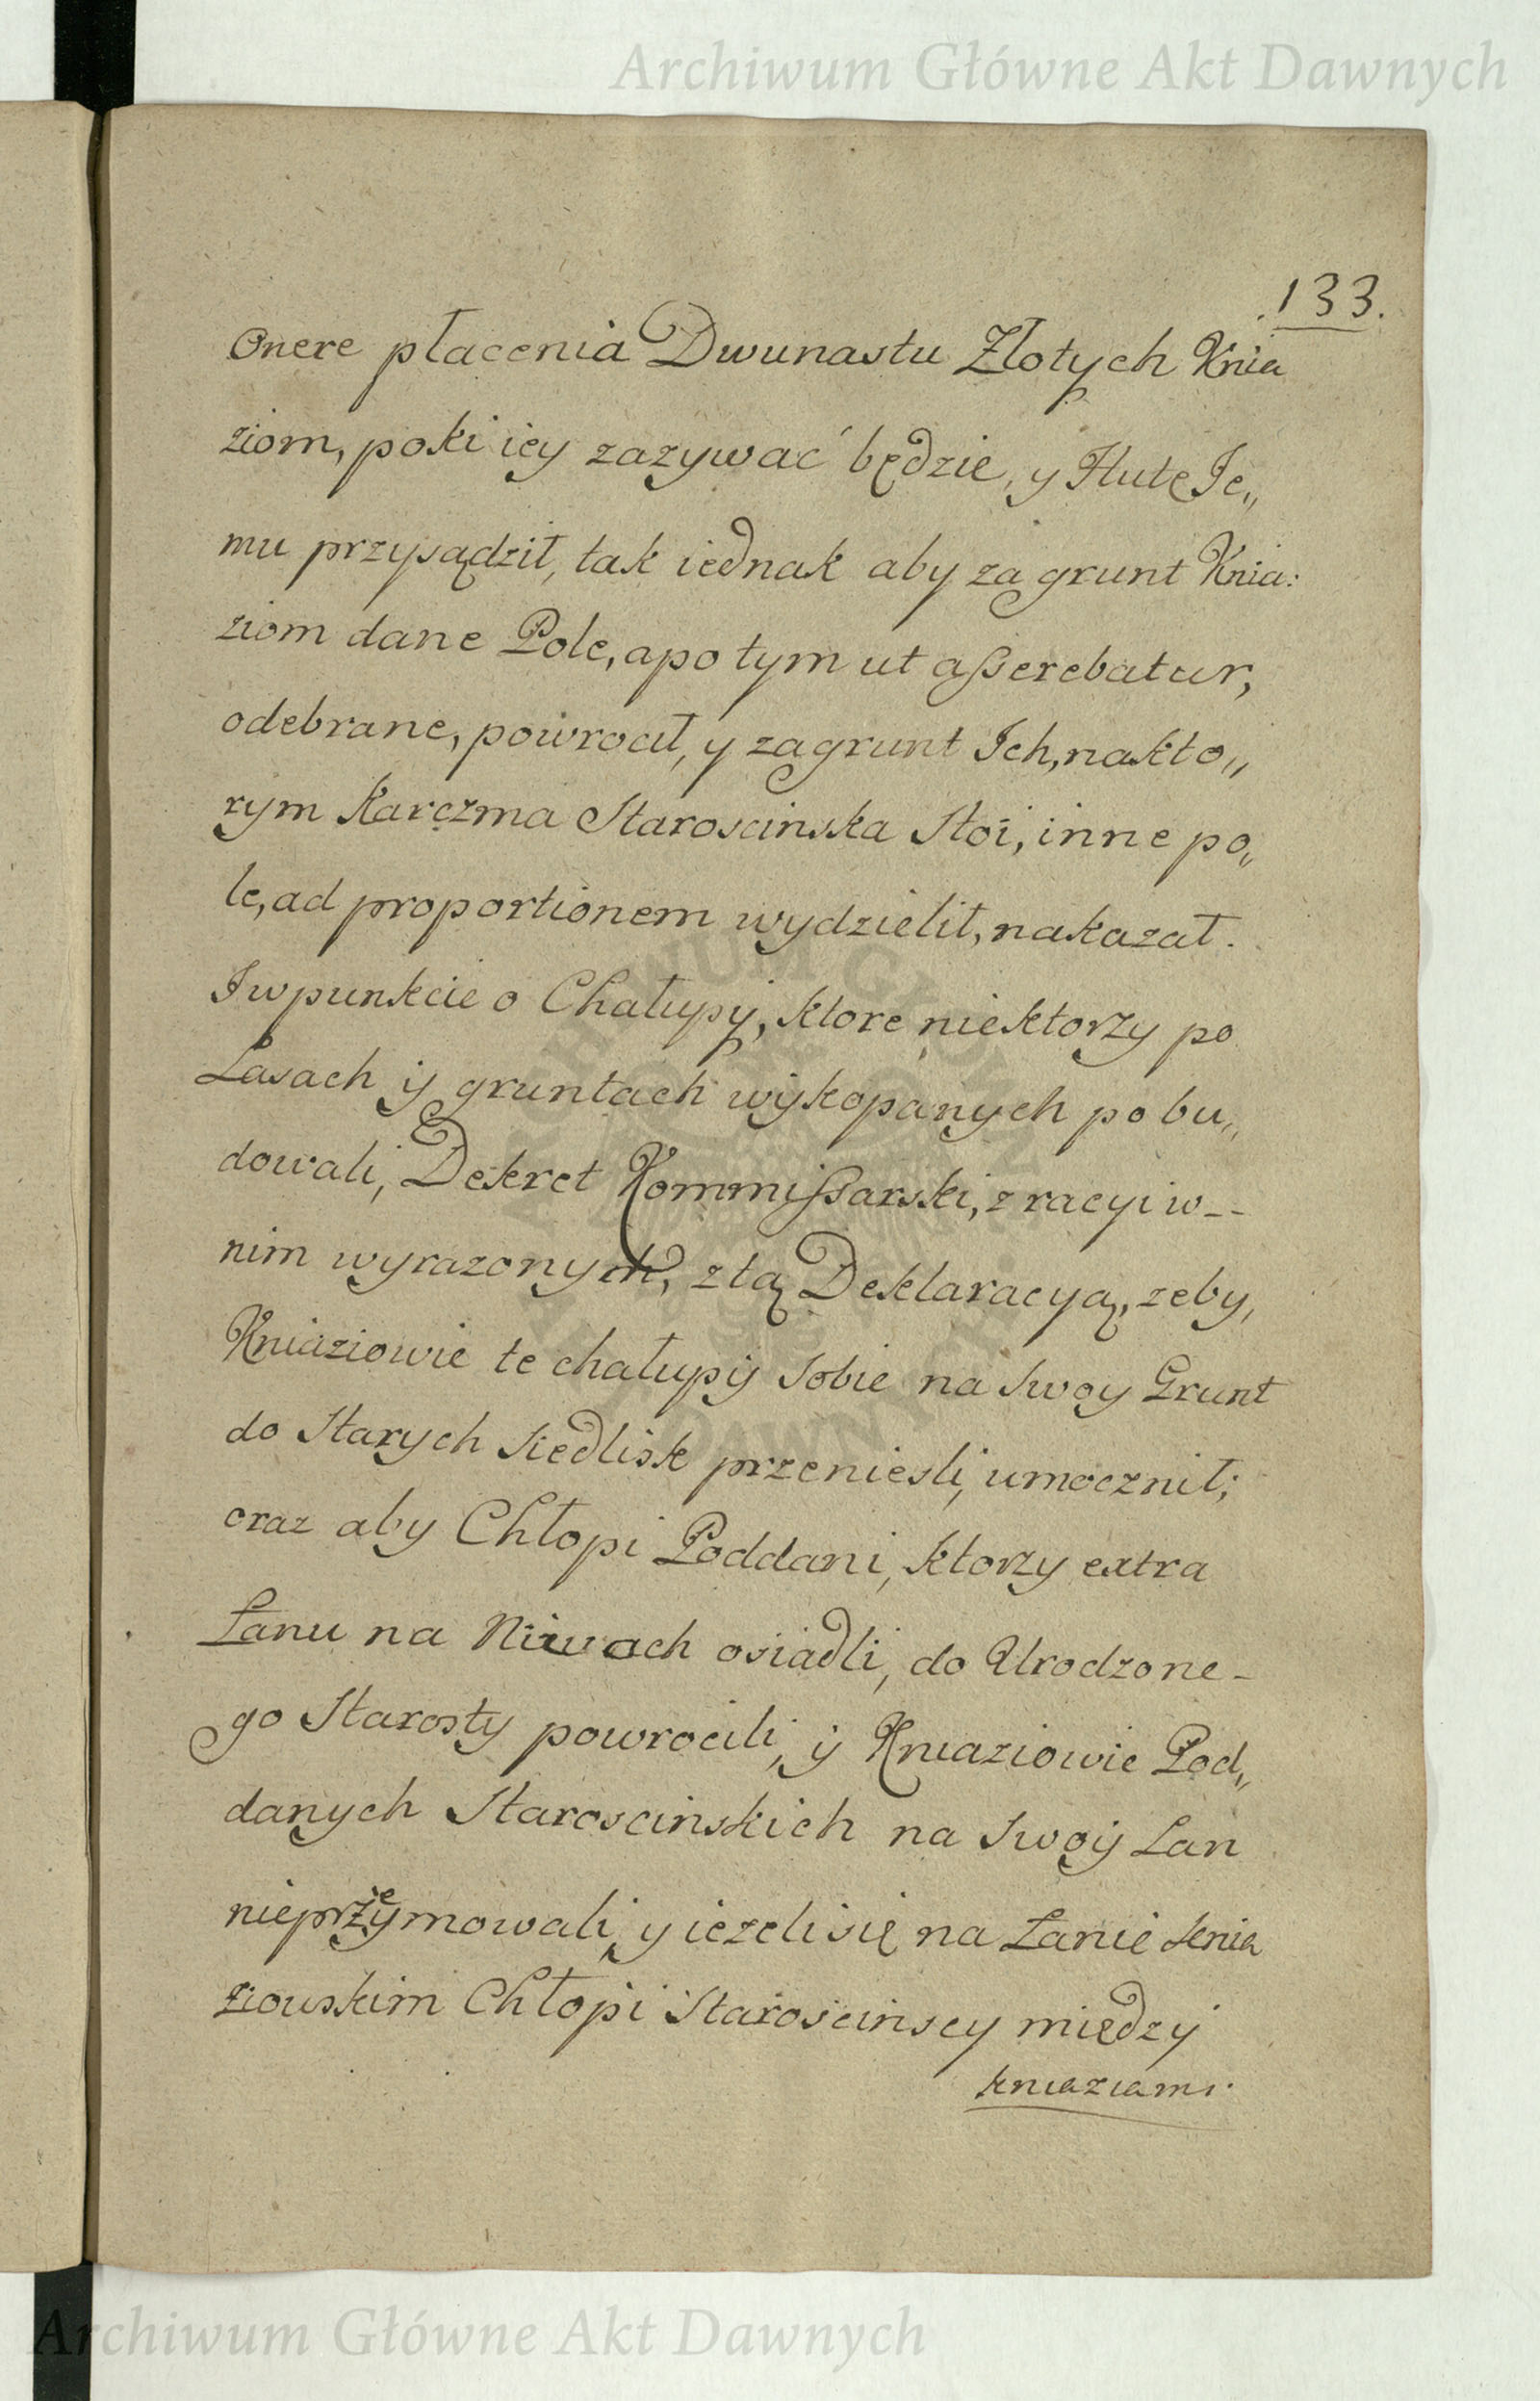 Archiwum Główne Akt Dawnych
.133.
Onere płacenia Dwunastu Złotych Knia
ziom, poki iey zazywać będzie, y Hutę Je„
mu przysądził, tak iednak aby za grunt Knia:
ziom dane Pole, apotym ut asserebatur,
odebrane, powrocił, y zagrunt Ich, nakto„
rym Karczma Staroscinska Stoi, inne po„
le, ad proportionem wydzielił, nakazał.
Iwpunkcie o Chałupy, ktore niektorzy po
Lasach y gruntach wykopanych pobu„
dowali, Dekret Kommissarski, z racyi w--
nim wyrazonych, ztą Deklaracyą, zeby,
Kniaziowie te chałupy Sobie na Swoy Grunt
do Starych Siedlisk przeniesli, umocznił;
oraz aby Chłopi Poddani, ktorzy extra
Łanu na Niwach osiadli, do Urodzone-
go Starosty powrocili, y Kniaziowie Pod„
danych Staroscinskich na Swoy Lan
nieprzyiemowali, y iezeli się na Łanie knia
ziowskim Chłopi Staroscinscy między
kniaziami.
Archiwum Główne Akt Dawnych